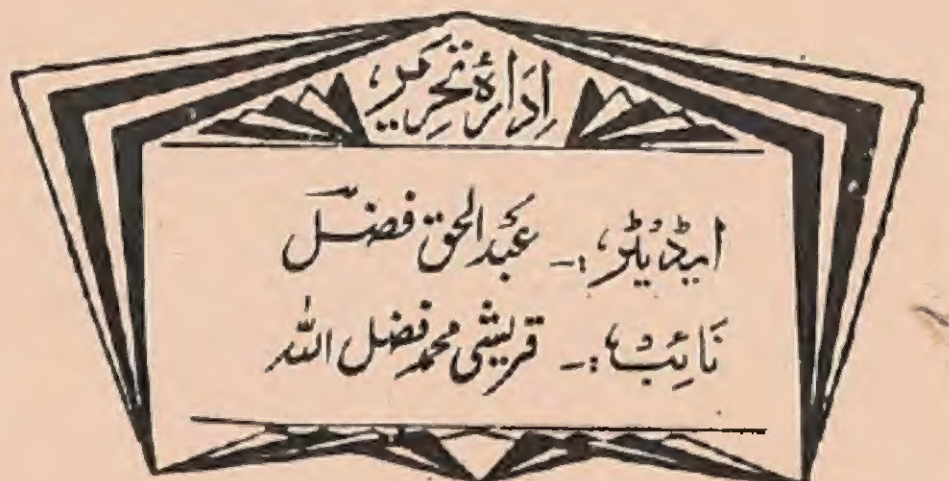 ادارۂ تحریر
ایڈیٹر:۔ عبدالحق فضل
نائب:۔ قریشی محمد فضل اللہ